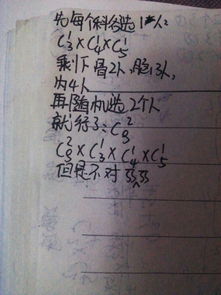 先每个科各选1人:
C₃¹×C₄¹×C₅¹
剩下骨2人,脑3人,
内4人
再随机选2个人
就行了:C₉²
C₉²×C₃¹×C₄¹×C₅¹
但是不对